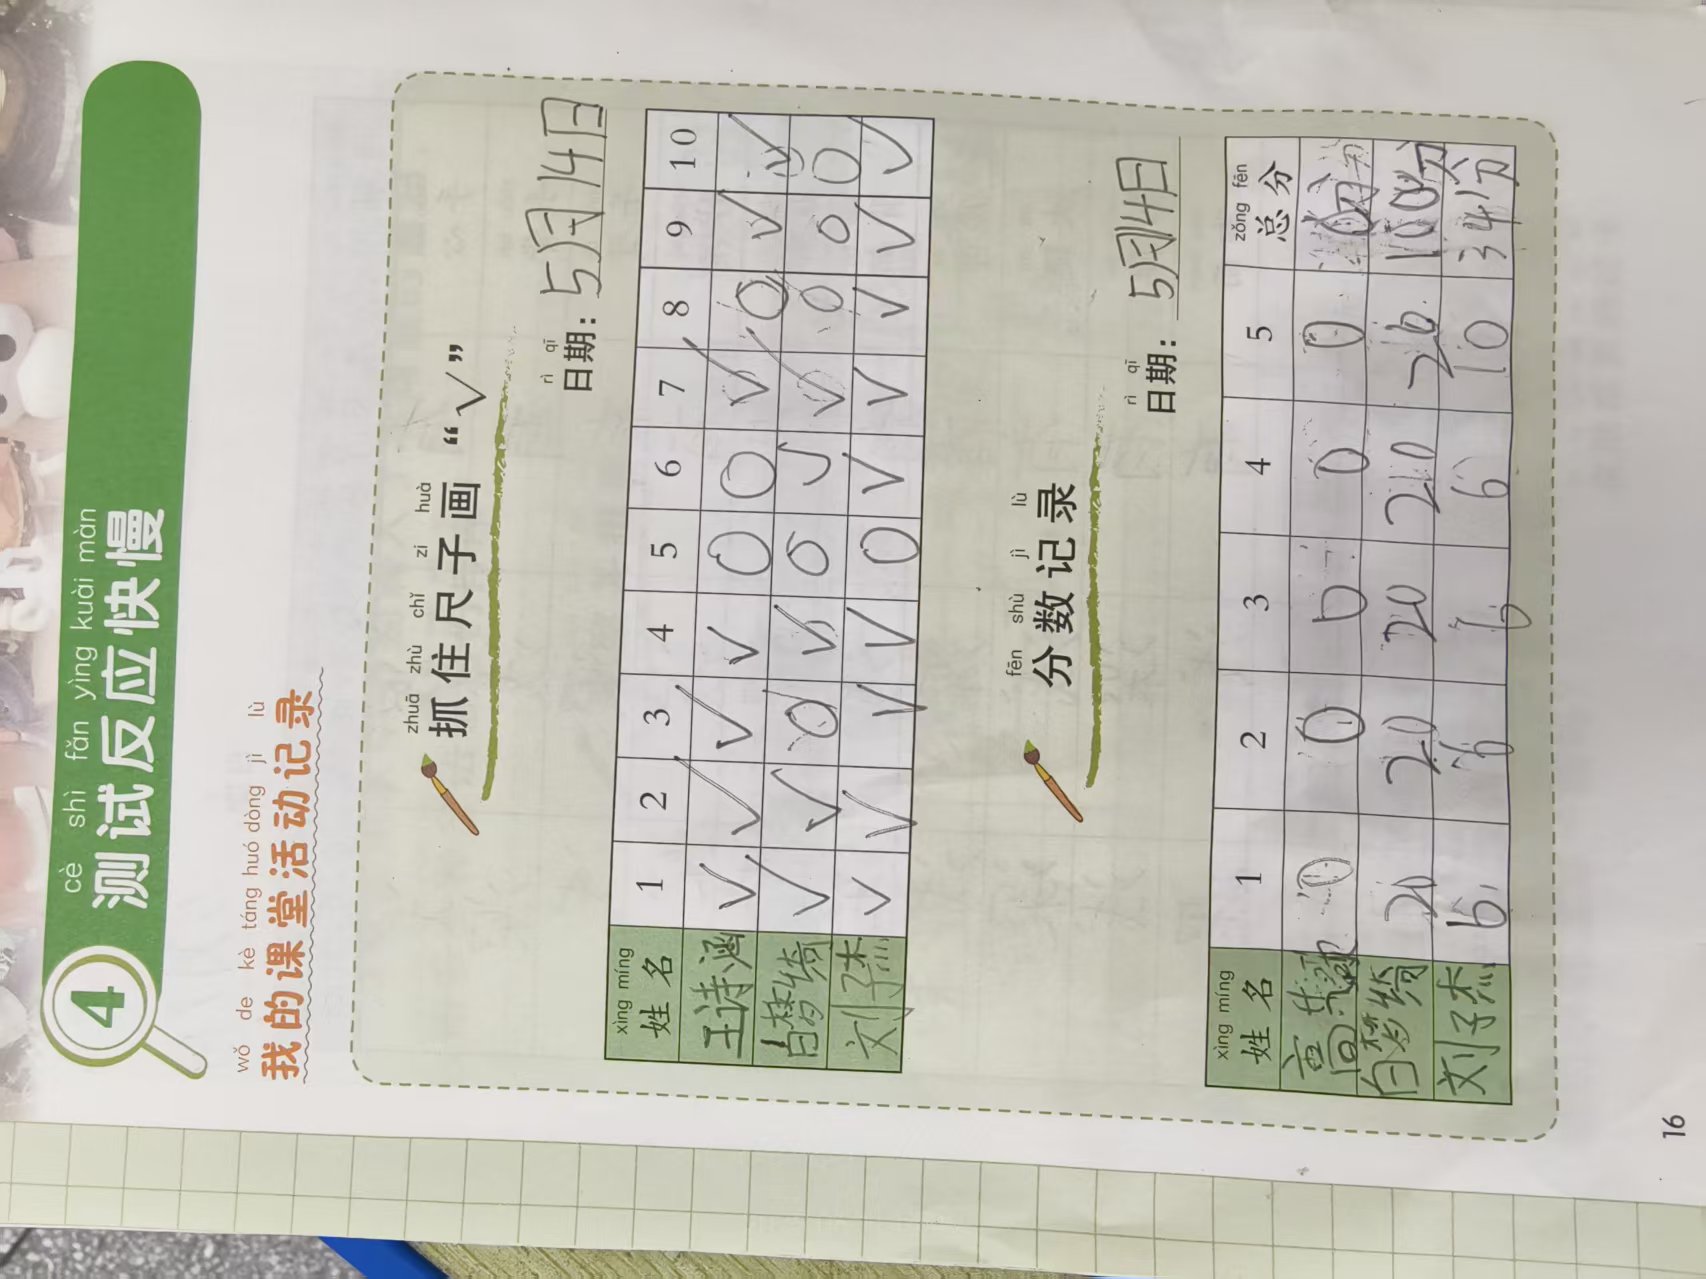 4
cè shì fǎn yìng kuài màn
测试反应快慢
wǒ de kè táng huó dòng jì lù
我的课堂活动记录
zhuā zhù chǐ zi huà
抓住尺子画“√”
rì qī
日期：5月14日
xìng míng
姓名 1 2 3 4 5 6 7 8 9 10
王诗涵 √ √ √ √ O O √ O √ √
白梦绮 √ √ O √ O √ √ O O O
刘子杰 √ √ √ √ O √ √ √ √ √
fēn shù jì lù
分数记录
rì qī
日期：5月14日
xìng míng zǒng fēn
姓名 1 2 3 4 5 总分
高 0 0 0 0 0 0分
白梦绮 20 20 20 20 20 100分
刘子杰 6 6 6 6 10 34分
16